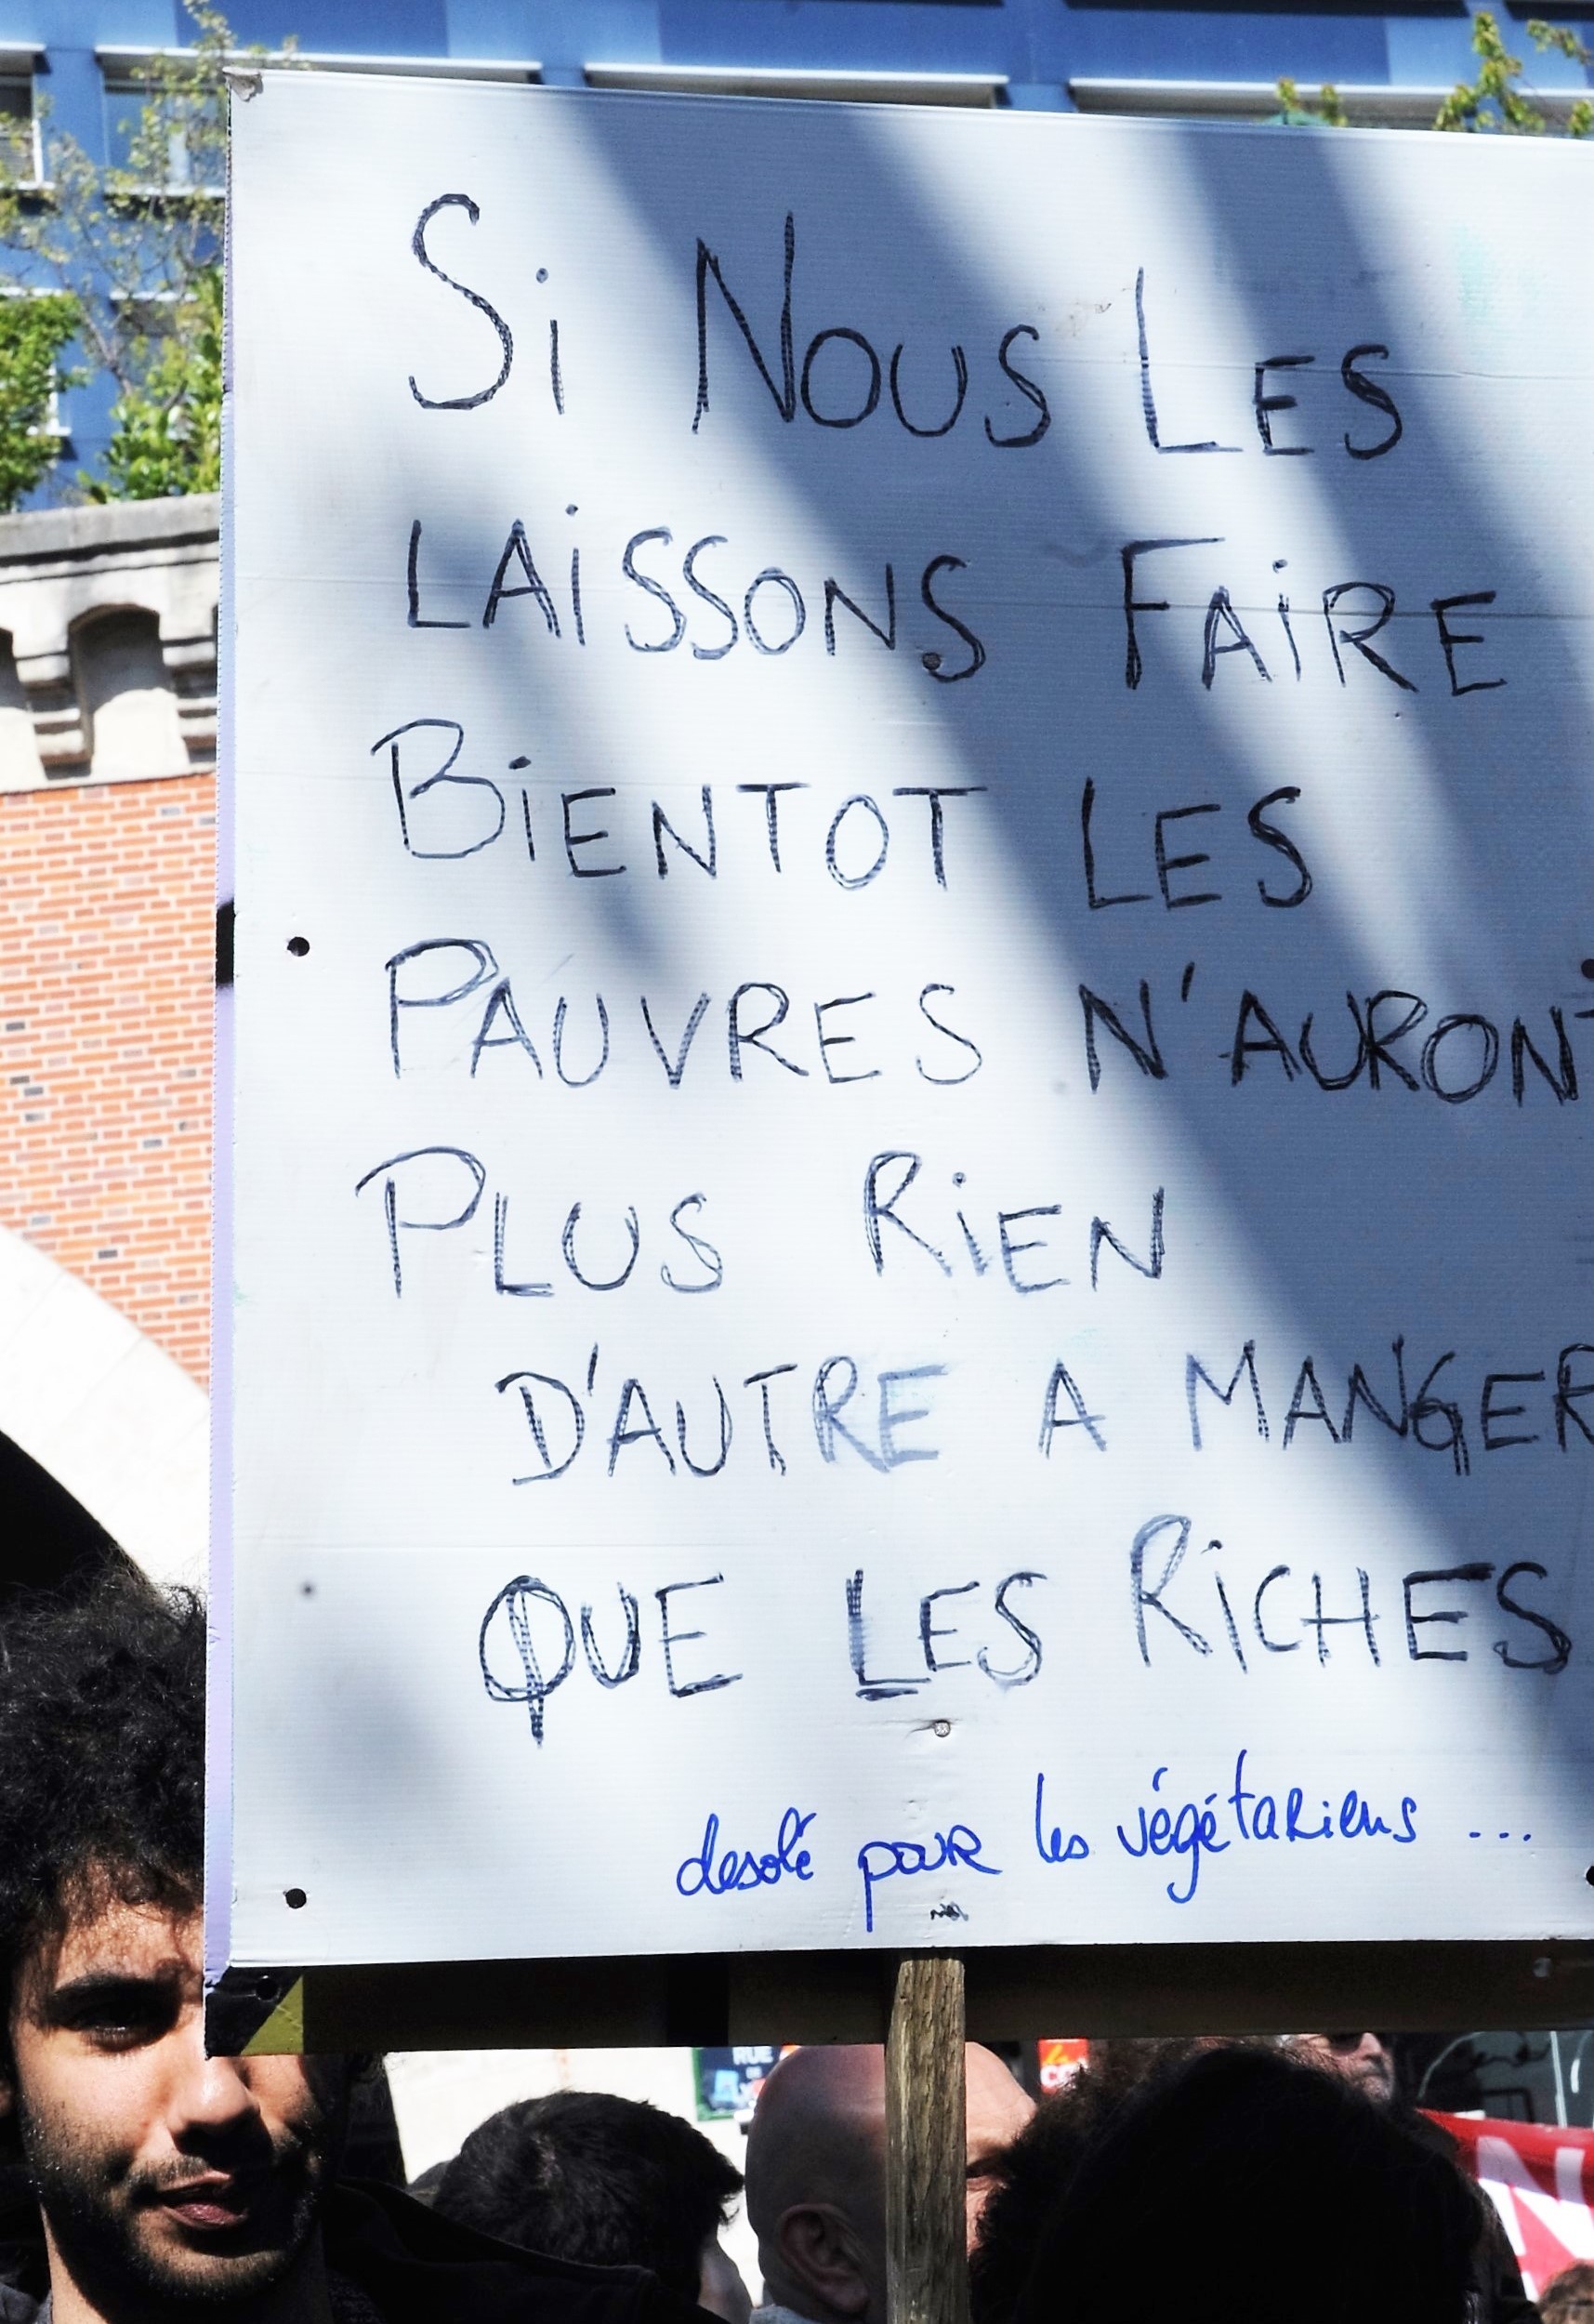 Si NOUS LES
LAiSSONS FAiRE
BiENTOT LES
PAUVRES N'AURONT
PLUS RiEN
D'AUTRE A MANGER
QUE LES RiCHES
desolé pour les végétariens ...
RUE